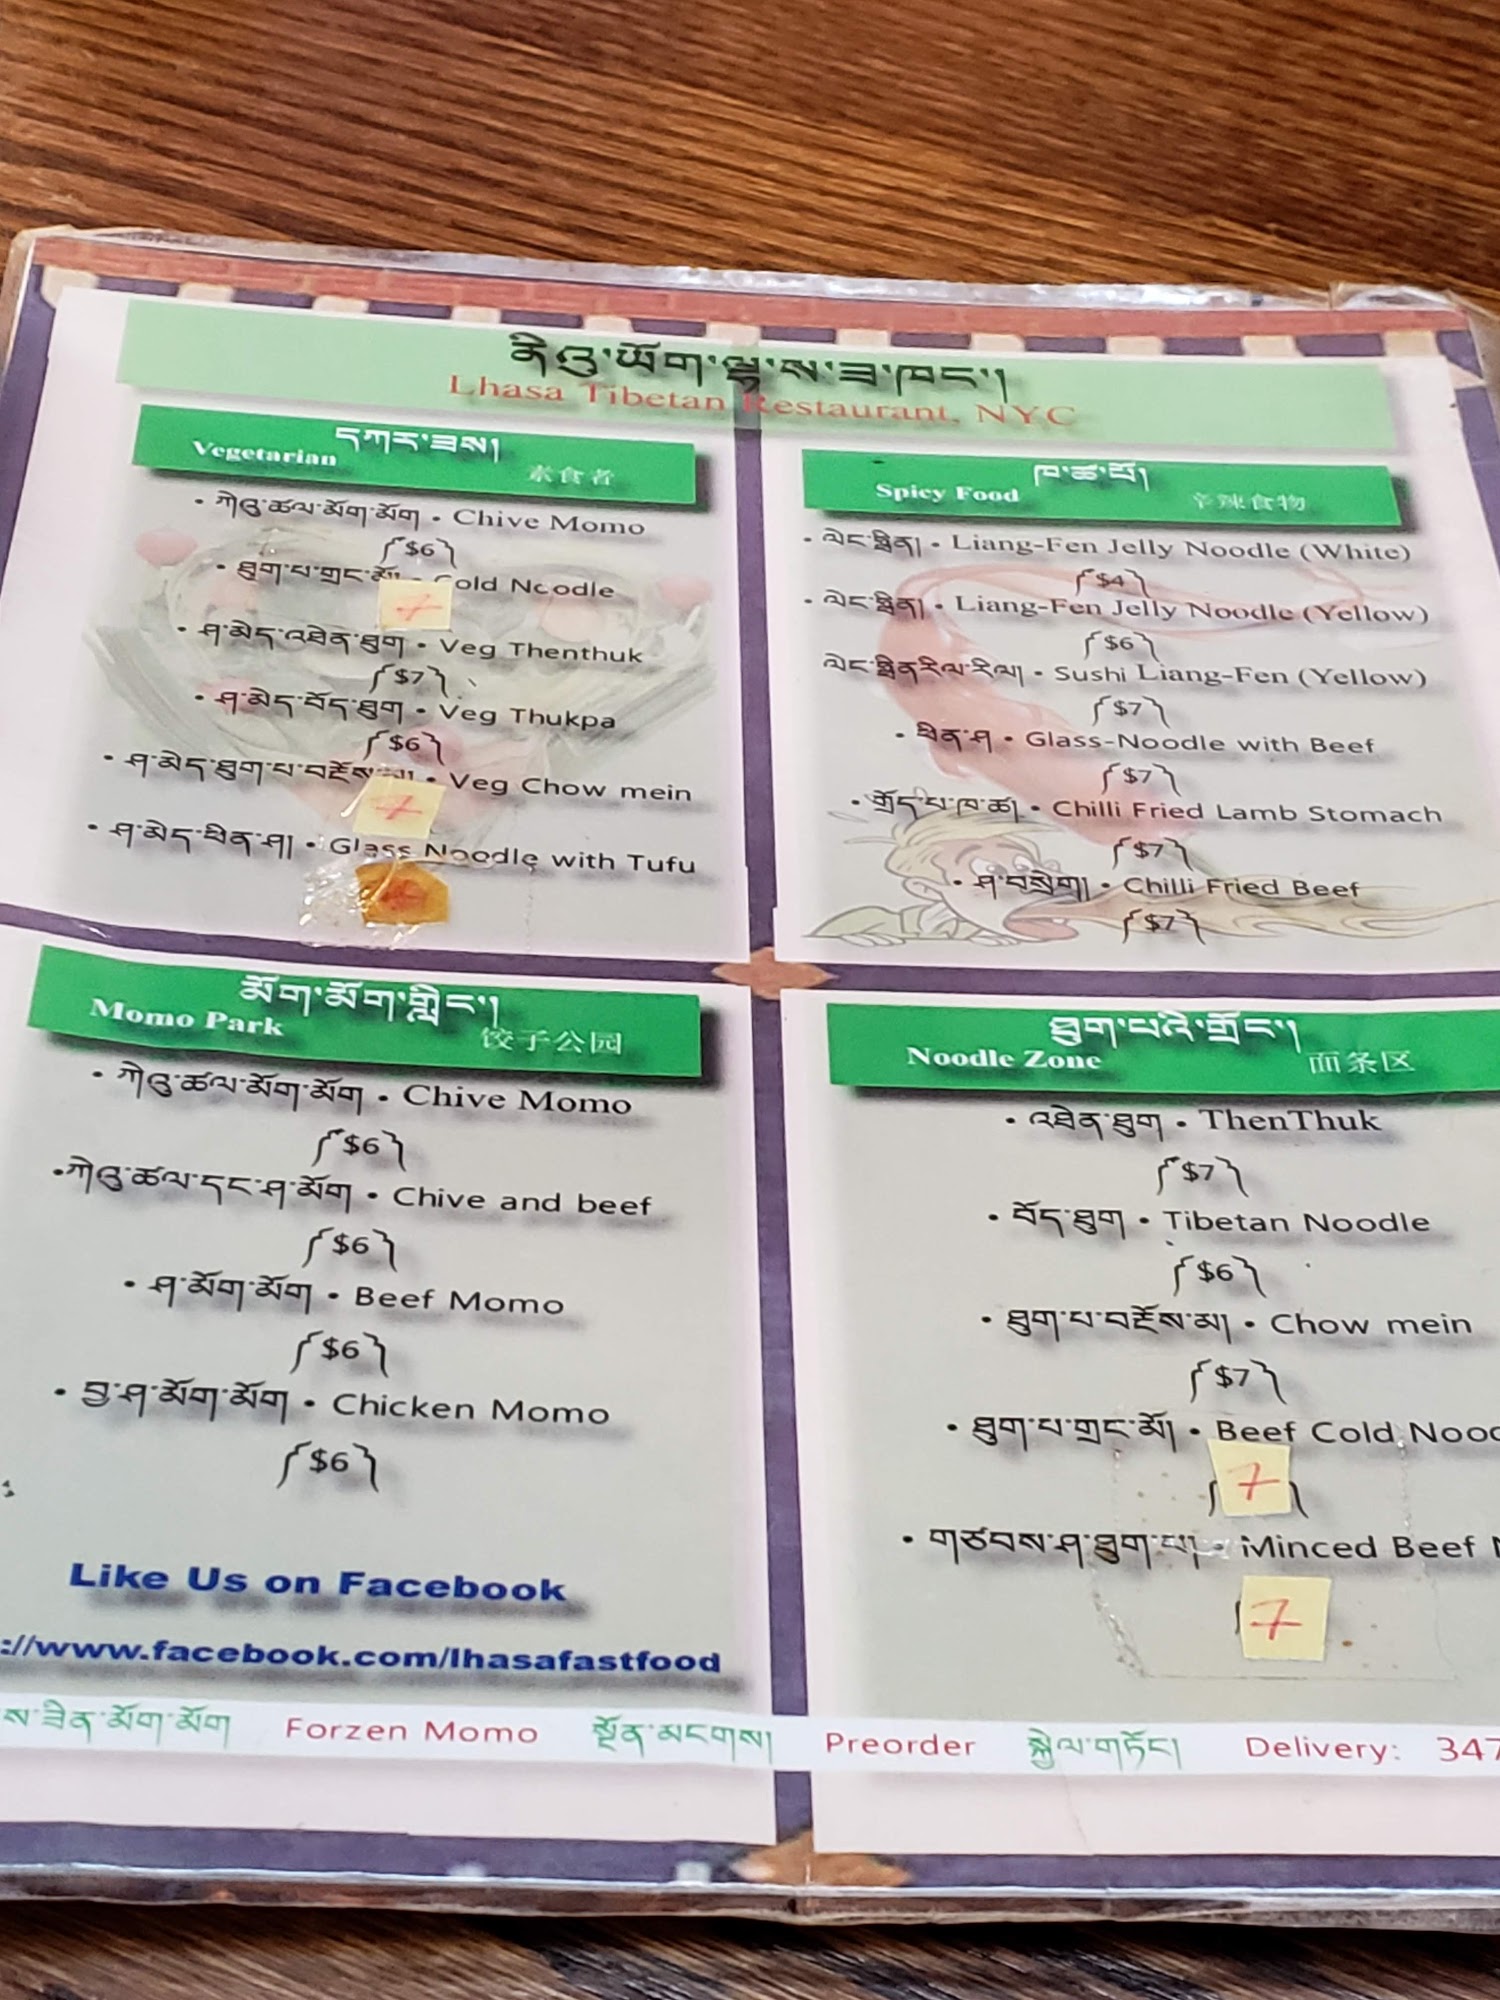 ནིའུ་ཡོག་ལྷ་ས་ཟ་ཁང་།
Lhasa Tibetan Restaurant, NYC
དཀར་ཟས།
Vegetarian 素食者
• ཀེའུ་ཚལ་མོག་མོག • Chive Momo
{$6}
• ཐུག་པ་གྲང་མོ། • Cold Noodle
7
• ཤ་མེད་འཐེན་ཐུག • Veg Thenthuk
{$7}
• ཤ་མེད་བོད་ཐུག • Veg Thukpa
{$6}
• ཤ་མེད་ཐུག་པ་བརྔོས་མ། • Veg Chow mein
7
• ཤ་མེད་ཕིན་ཤ། • Glass Noodle with Tufu
ཁ་ཚ་པོ།
Spicy Food 辛辣食物
• ལེང་ཕིན། • Liang-Fen Jelly Noodle (White)
{$4}
• ལེང་ཕིན། • Liang-Fen Jelly Noodle (Yellow)
{$6}
ལེང་ཕིན་རིལ་རིལ། • Sushi Liang-Fen (Yellow)
{$7}
• ཕིན་ཤ • Glass-Noodle with Beef
{$7}
• གྲོད་པ་ཁ་ཚ། • Chilli Fried Lamb Stomach
{$7}
• ཤ་བསྲེག། • Chilli Fried Beef
{$7}
མོག་མོག་གླིང་།
Momo Park 饺子公园
• ཀེའུ་ཚལ་མོག་མོག • Chive Momo
{$6}
• ཀེའུ་ཚལ་དང་ཤ་མོག • Chive and beef
{$6}
• ཤ་མོག་མོག • Beef Momo
{$6}
• བྱ་ཤ་མོག་མོག • Chicken Momo
{$6}
Like Us on Facebook
://www.facebook.com/lhasafastfood
ཐུག་པའི་གྲོང་།
Noodle Zone 面条区
• འཐེན་ཐུག • ThenThuk
{$7}
• བོད་ཐུག • Tibetan Noodle
{$6}
• ཐུག་པ་བརྔོས་མ། • Chow mein
{$7}
• ཐུག་པ་གྲང་མོ། • Beef Cold Nood
7
• གཙབས་ཤ་ཐུག་པ། • Minced Beef
7
ས་ཟིན་མོག་མོག Forzen Momo སྔོན་མངགས། Preorder སྐྱེལ་གཏོང། Delivery: 347